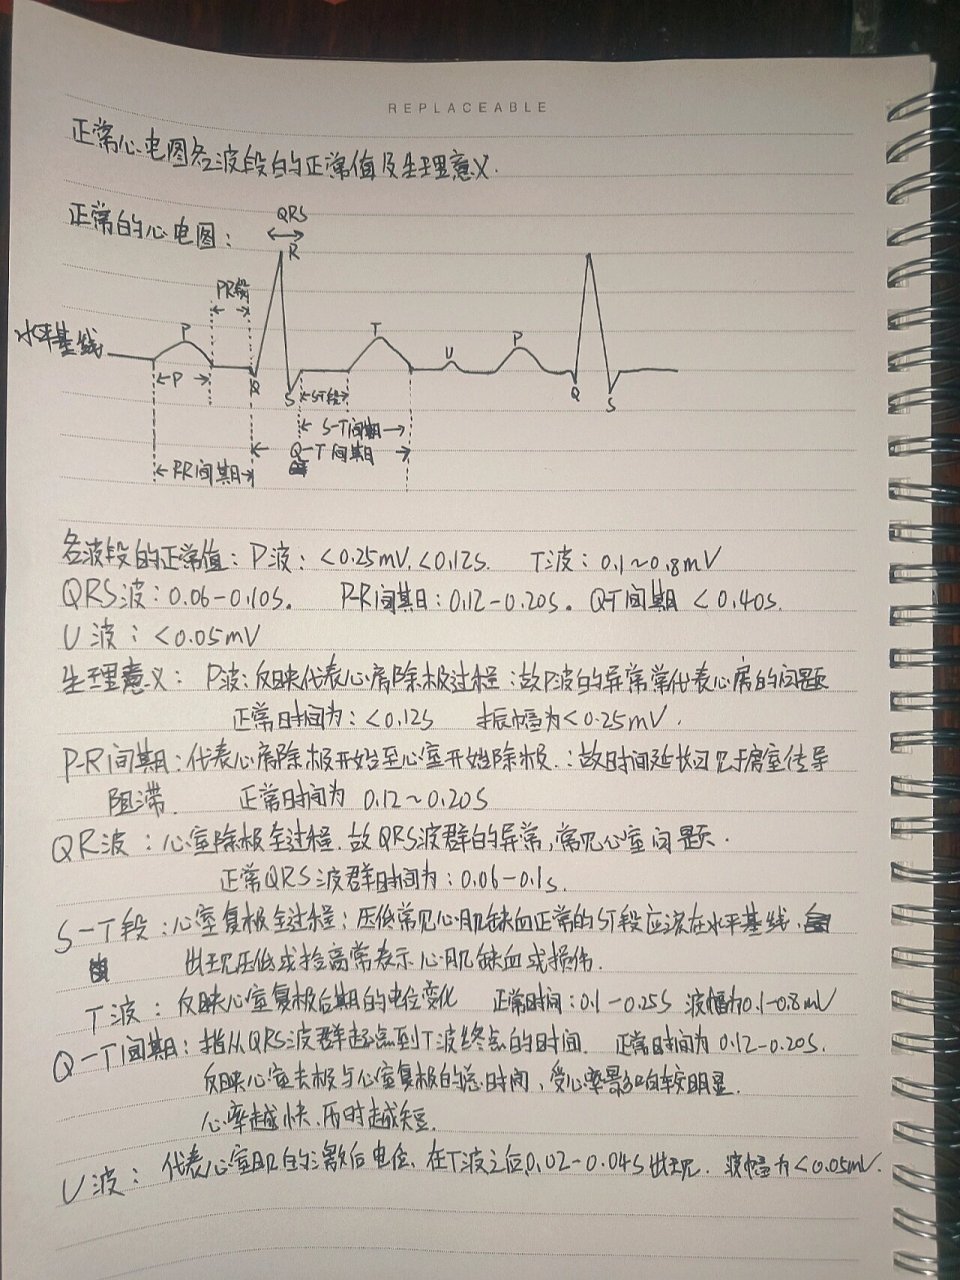 REPLACEABLE
正常心电图各波段的正常值及生理意义.
正常的心电图:
QRS
R
PR段
水平基线
P
T
U
P
P
Q
S
ST段
Q
S
S-T间期
Q-T间期
PR间期
各波段的正常值: P波: <0.25mV. <0.12s. T波: 0.1~0.8mV
QRS波: 0.06-0.10s. P-R间期: 0.12-0.20s. QT间期 <0.40s.
U波: <0.05mV
生理意义: P波: 反映代表心房除极过程: 故P波的异常常代表心房的问题
正常时间为: <0.12s 振幅为<0.25mV.
P-R间期: 代表心房除极开始至心室开始除极.: 故时间延长习见于房室传导
阻滞. 正常时间为 0.12~0.20s
QR波: 心室除极全过程. 故QRS波群的异常,常见心室问题.
正常QRS波群时间为: 0.06-0.1s.
S-T段: 心室复极全过程: 压低常见心肌缺血正常的ST段应该在水平基线,
出现压低或抬高常表示心肌缺血或损伤.
T波: 反映心室复极后期的电位变化 正常时间: 0.1-0.25s 波幅为0.1-0.8mV
Q-T间期: 指从QRS波群起点到T波终点的时间. 正常时间为0.12-0.20s.
反映心室去极与心室复极的总时间,受心率影响较明显.
心率越快,历时越短.
U波: 代表心室肌的激后电位,在T波之位0.02-0.04s出现. 波幅为<0.05mV.